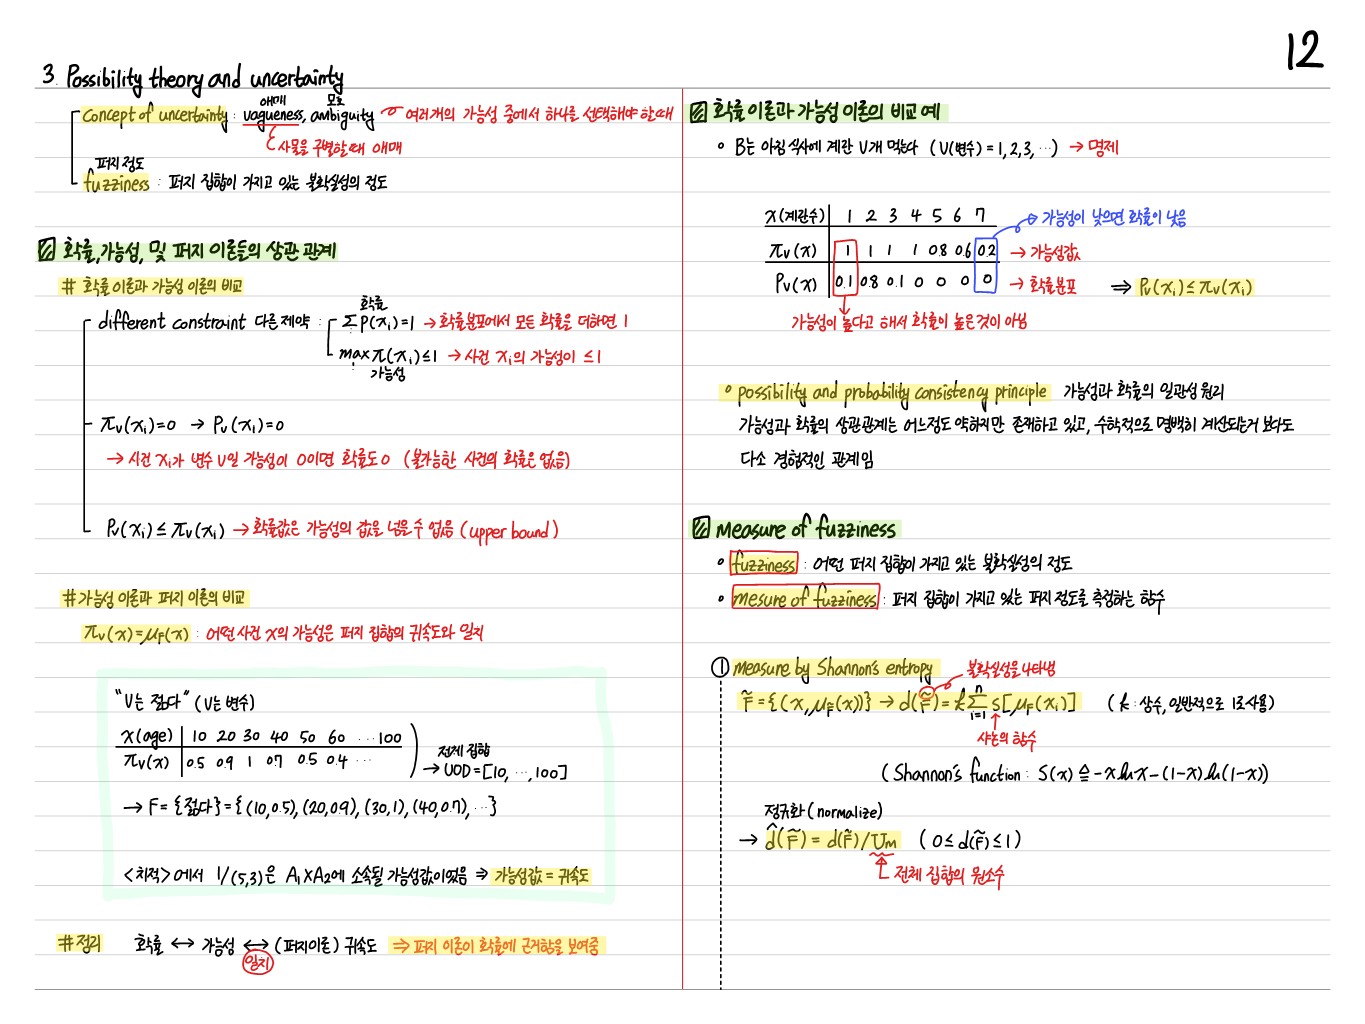 12
3. Possibility theory and uncertainty
애매 모호
concept of uncertainty : vagueness, ambiguity 여러개의 가능성 중에서 하나를 선택해야 할 때
사물을 구별할 때 애매
퍼지 정도
fuzziness : 퍼지 집합이 가지고 있는 불확실성의 정도
확률, 가능성, 및 퍼지 이론들의 상관 관계
# 확률 이론과 가능성 이론의 비교
확률
different constraint 다른 제약 : ∑P(xᵢ)=1 → 확률분포에서 모든 확률을 더하면 1
max π(xᵢ)≤1 → 사건 xᵢ의 가능성이 ≤1
가능성
πᵥ(xᵢ)=0 → Pᵥ(xᵢ)=0
→ 사건 xᵢ가 변수 V일 가능성이 0이면 확률도 0 (불가능한 사건의 확률은 없음)
Pᵥ(xᵢ) ≤ πᵥ(xᵢ) → 확률값은 가능성의 값을 넘을 수 없음 (upper bound)
# 가능성 이론과 퍼지 이론의 비교
πᵥ(x)=μF(x) : 어떤 사건 x의 가능성은 퍼지 집합의 귀속도와 일치
"V는 젊다" (V는 변수)
x(age) 10 20 30 40 50 60 ⋯ 100
πᵥ(x) 0.5 0.9 1 0.7 0.5 0.4 ⋯
전체 집합
→ UOD=[10, ⋯, 100]
→ F = {젊다} = {(10,0.5), (20,0.9), (30,1), (40,0.7), ⋯}
에서 1/(5,3)은 A₁×A₂에 소속될 가능성값이었음 ⇒ 가능성값 = 귀속도
#정리 확률 ↔ 가능성 ↔ (퍼지이론) 귀속도 ⇒ 퍼지 이론이 확률에 근거함을 보여줌
일치
확률 이론과 가능성 이론의 비교 예
∘ B는 아침 식사에 계란 V개 먹는다 (V(변수) = 1, 2, 3, ⋯) → 명제
x(계란수) 1 2 3 4 5 6 7 가능성이 낮으면 확률이 낮음
πᵥ(x) 1 1 1 1 0.8 0.6 0.2 → 가능성값
Pᵥ(x) 0.1 0.8 0.1 0 0 0 0 → 확률분포 ⇒ Pᵥ(xᵢ)≤πᵥ(xᵢ)
가능성이 높다고 해서 확률이 높은것이 아님
∘ possibility and probability consistency principle 가능성과 확률의 일관성 원리
가능성과 확률의 상관관계는 어느정도 약하지만 존재하고 있고, 수학적으로 명백히 계산되는거 보다도
다소 경험적인 관계임
measure of fuzziness
∘ fuzziness : 어떤 퍼지 집합이 가지고 있는 불확실성의 정도
∘ mesure of fuzziness : 퍼지 집합이 가지고 있는 퍼지 정도를 측정하는 함수
① measure by Shannon's entropy 불확실성을 나타냄
F̃ = {(x, μF(x))} → d(F̃) = k∑ⁿᵢ₌₁ S[μF(xᵢ)] (k : 상수, 일반적으로 1로 사용)
샤논의 함수
(Shannon's function : S(x) ≙ -x ln x - (1-x) ln(1-x))
정규화 (normalize)
→ d̂(F̃) = d(F̃)/Um (0 ≤ d(F̃) ≤ 1)
전체 집합의 원소수